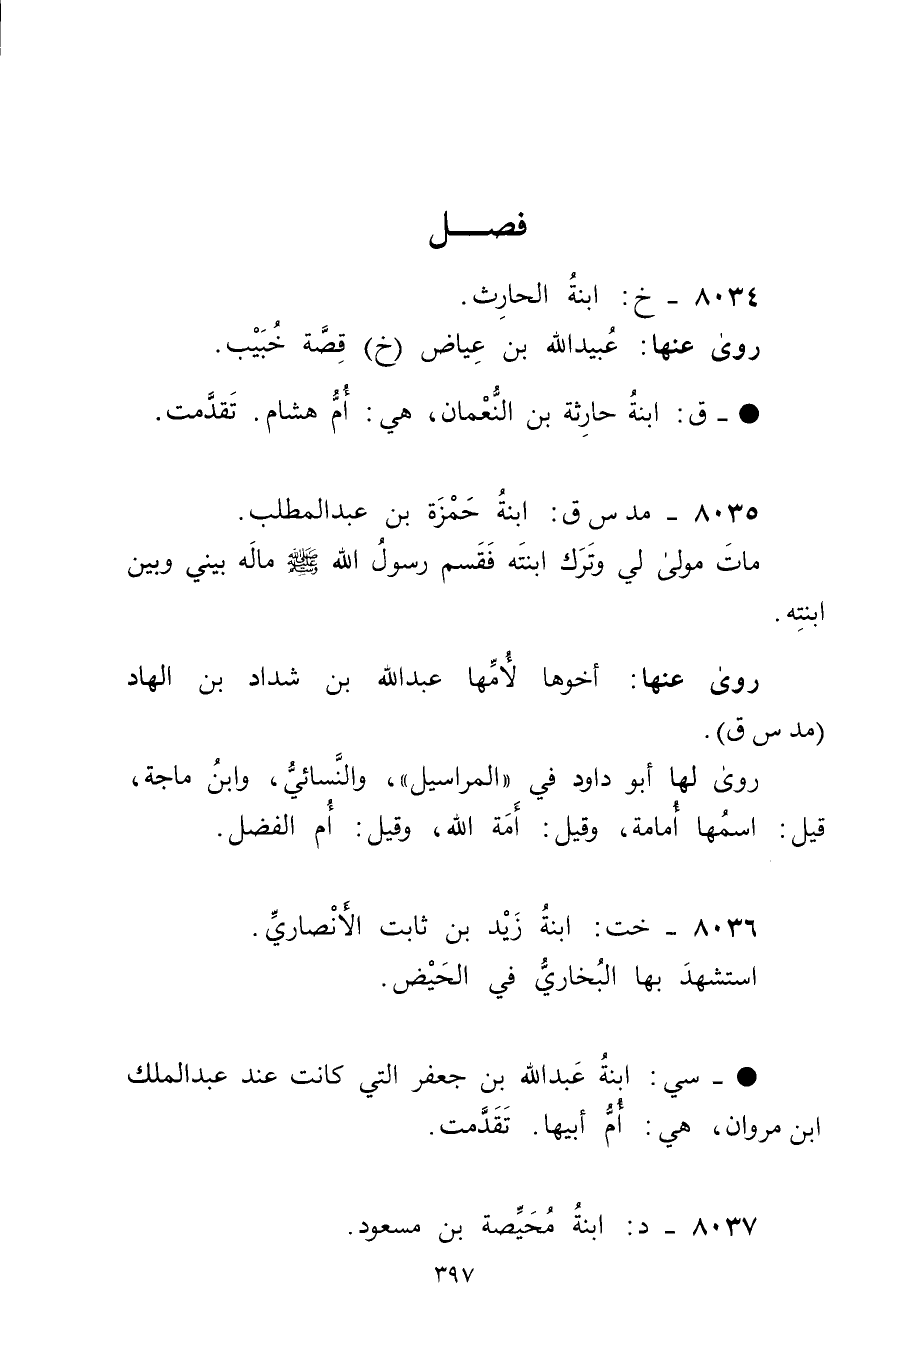 فصـــل
٨٠٣٤ ـ خ: ابنةُ الحارِث.
روىٰ عنها: عُبيدالله بن عِياض (خ) قِصَّة خُبَيْب.
● ـ ق: ابنةُ حارِثة بن النُّعْمان، هي: أُمُّ هشام. تَقدَّمت.
٨٠٣٥ ـ مد س ق: ابنةُ حَمْزَة بن عبدالمطلب.
ماتَ مولىٰ لي وتَرَك ابنتَه فَقَسم رسولُ الله ﷺ مالَه بيني وبين
ابنتِه.
روىٰ عنها: أخوها لأُمِّها عبدالله بن شداد بن الهاد
(مد س ق).
روىٰ لها أبو داود في «المراسيل»، والنَّسائيُّ، وابنُ ماجة،
قيل: اسمُها أُمامة، وقيل: أَمَة الله، وقيل: أُم الفضل.
٨٠٣٦ ـ خت: ابنةُ زَيْد بن ثابت الأَنْصاريِّ.
استشهدَ بها البُخاريُّ في الحَيْض.
● ـ سي: ابنةُ عَبدالله بن جعفر التي كانت عند عبدالملك
ابن مروان، هي: أُمُّ أبيها. تَقَدَّمت.
٨٠٣٧ ـ د: ابنةُ مُحَيِّصة بن مسعود.
٣٩٧